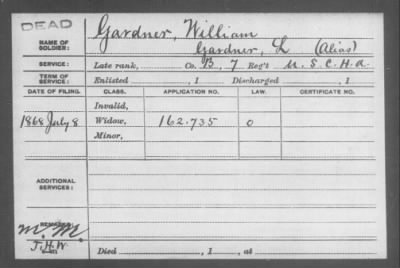 DEAD
NAME OF SOLDIER: Gardner, William
Gardner, L (Alias)
SERVICE: Late rank, Co. B, 7 Reg't U.S.C.H.A.
TERM OF SERVICE: Enlisted , 1 Discharged , 1
DATE OF FILING. CLASS. APPLICATION NO. LAW. CERTIFICATE NO.
Invalid,
1868 July 8 Widow, 162.735 O
Minor,
ADDITIONAL SERVICES:
REMARKS:
M.M.
J.H.W.
Died , 1 , at